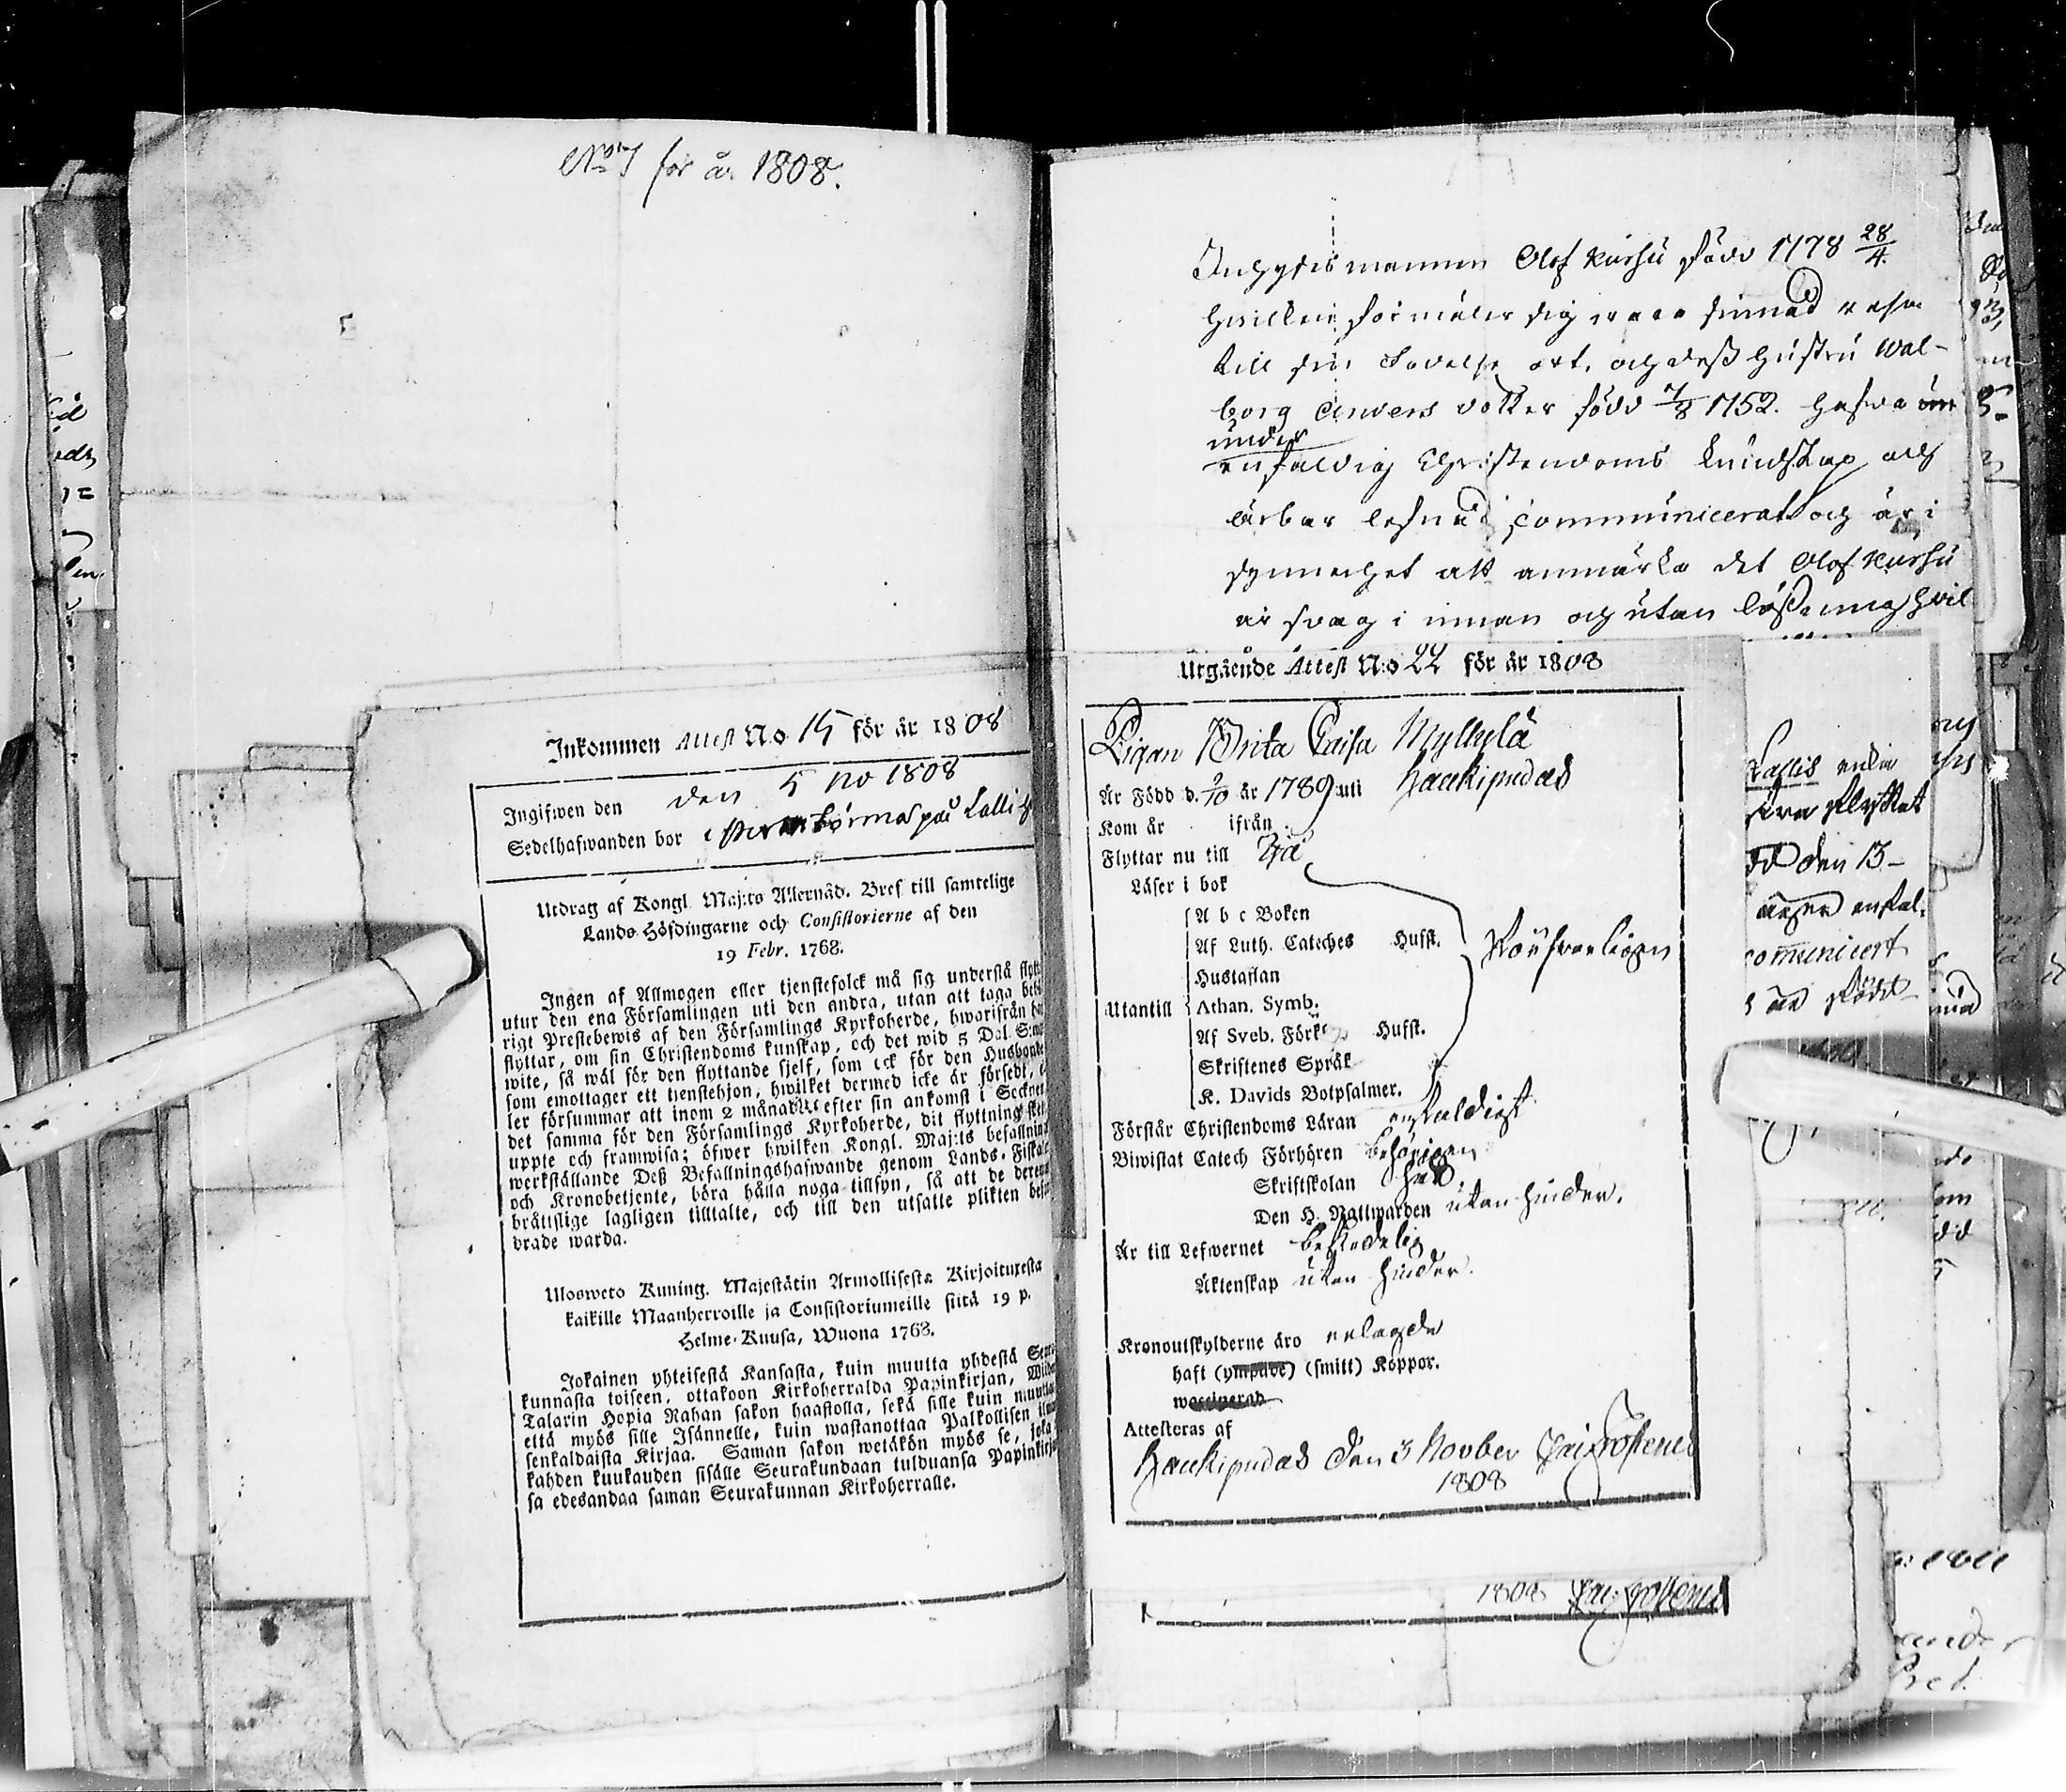 No 7 för år 1808.
Inhyses mannen Olof Karhu född 1778 28/4.
hvilken förmäler sig vara sinnad resa
till sin födelse ort. och dess hustru Wal-
borg Anders dotter född 7/8 1752. hafva
under
enfaldig Christendoms kundskap och
ärbar lefnad communicerat och är i
synnerhet att anmärka det Olof Karhu
är svag i innan och utan läsning hvil
Inkommen Attest No 15 för år 1808
Ingifwen den den 5 no 1808
Sedelhafwanden bor
Utdrag af Kongl. Maj:ts Allernåd. Bref till samtelige
Lands-Höfdingarne och Consistorierne af den
19 Febr. 1768.
Ingen af Allmogen eller tjenstefolck må sig understå flyt
utur den ena Församlingen uti den andra, utan att taga beh
rigt Prestebewis af den Församlings Kyrkoherde, hwarifrån han
flyttar, om sin Christendoms kunskap, och det wid 5 Dal. S:mt
wite, så wäl för den flyttande sjelf, som ock för den Husbonde
som emottager ett tjenstehjon, hwilket dermed icke är försedt, e
ler försummar att inom 2 månader efter sin ankomst i Socknen
det samma för den Församlings Kyrkoherde, dit flyttning sker
uppte och framwisa; öfwer hwilken Kongl. Maj:ts befallning
werkställande Deß Befallningshafwande genom Lands-Fiskale
och Kronobetjente, böra hålla noga tillsyn, så att de deremot
bråttslige lagligen tilltalte, och till den utsatte plikten befor
drade warda.
Ulosweto Kuning. Majestätin Armollisesta Kirjoituxesta
kaikille Maanherroille ja Consistoriumeille siitä 19 p.
Helme-Kuusa, Wuona 1768.
Jokainen yhteisestä Kansasta, kuin muutta yhdestä Seura
kunnasta toiseen, ottakoon Kirkoherralda Papinkirjan, Wiiden
Talarin Hopia Rahan sakon haastolla, sekä sille kuin muuttaa
että myös sille Isännelle, kuin wastanottaa Palkollisen ilman
senkaldaista Kirjaa. Saman sakon wetäkön myös se, joka
kahden kuukauden sisälle Seurakundaan tulduansa Papinkirjan
sa edesandaa saman Seurakunnan Kirkoherralle.
Utgående Attest N:o 22 för år 1808
Pigan Brita Caisa Myllylä
Är Född d. 9/10 år 1789 uti Haukipudas
Kom år ifrån
Flyttar nu till Ijå
Läser i bok
A b c Boken
Af Luth. Cateches Husst.
Hustaflan
Utantill Athan. Symb.
Af Sveb. Förkl. Husst.
Skriftenes Språk
K. Davids Botpsalmer.
Försvarligen
Förstår Christendoms Läran enfaldigt
Biwistat Catech Förhören behörigen
Skriftskolan
Den H. Nattwarden utan hinder.
Är till Lefwernet beskedelig
Äktenskap utan hinder.
Kronoutskylderne äro erlagde
haft (ympade) (smitt) Koppor.
waccinerad
Attesteras af
Haukipudas den 3 Novber
1808
1808
Kallis
flyttat
den 13-
enfal-
comunicert
född